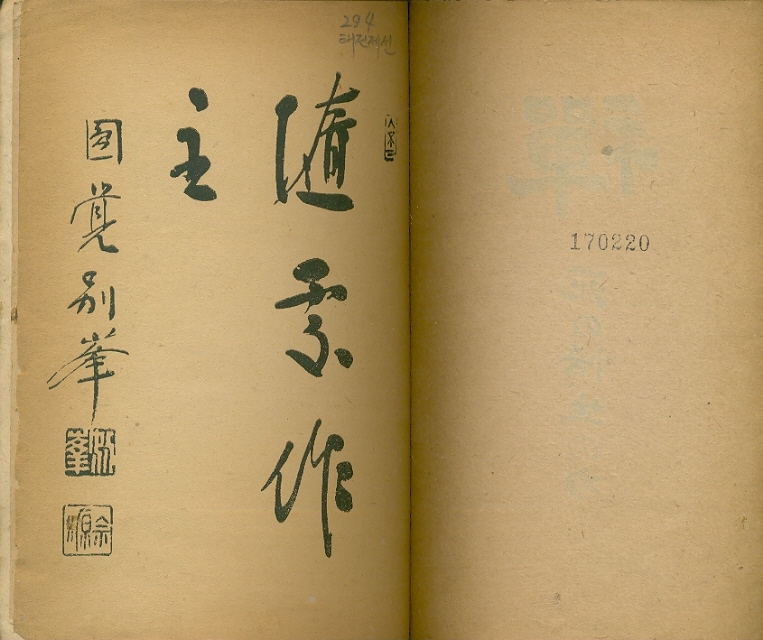 294
태전제선
隨處作
主
圓覚別峯
170220